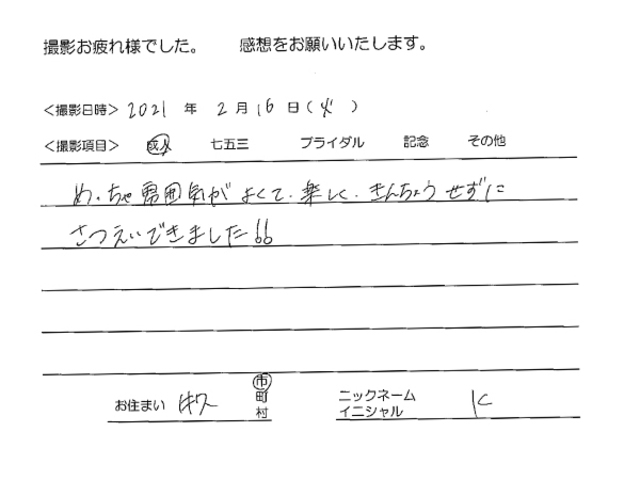 撮影お疲れ様でした。 感想をお願いいたします。
<撮影日時> 2021 年 2 月 16 日 (火)
<撮影項目> 成人 七五三 ブライダル 記念 その他
めっちゃ雰囲気がよくて、楽しく、きんちょうせずに
さつえいできました!!
お住まい 市 町 村
ニックネーム イニシャル K